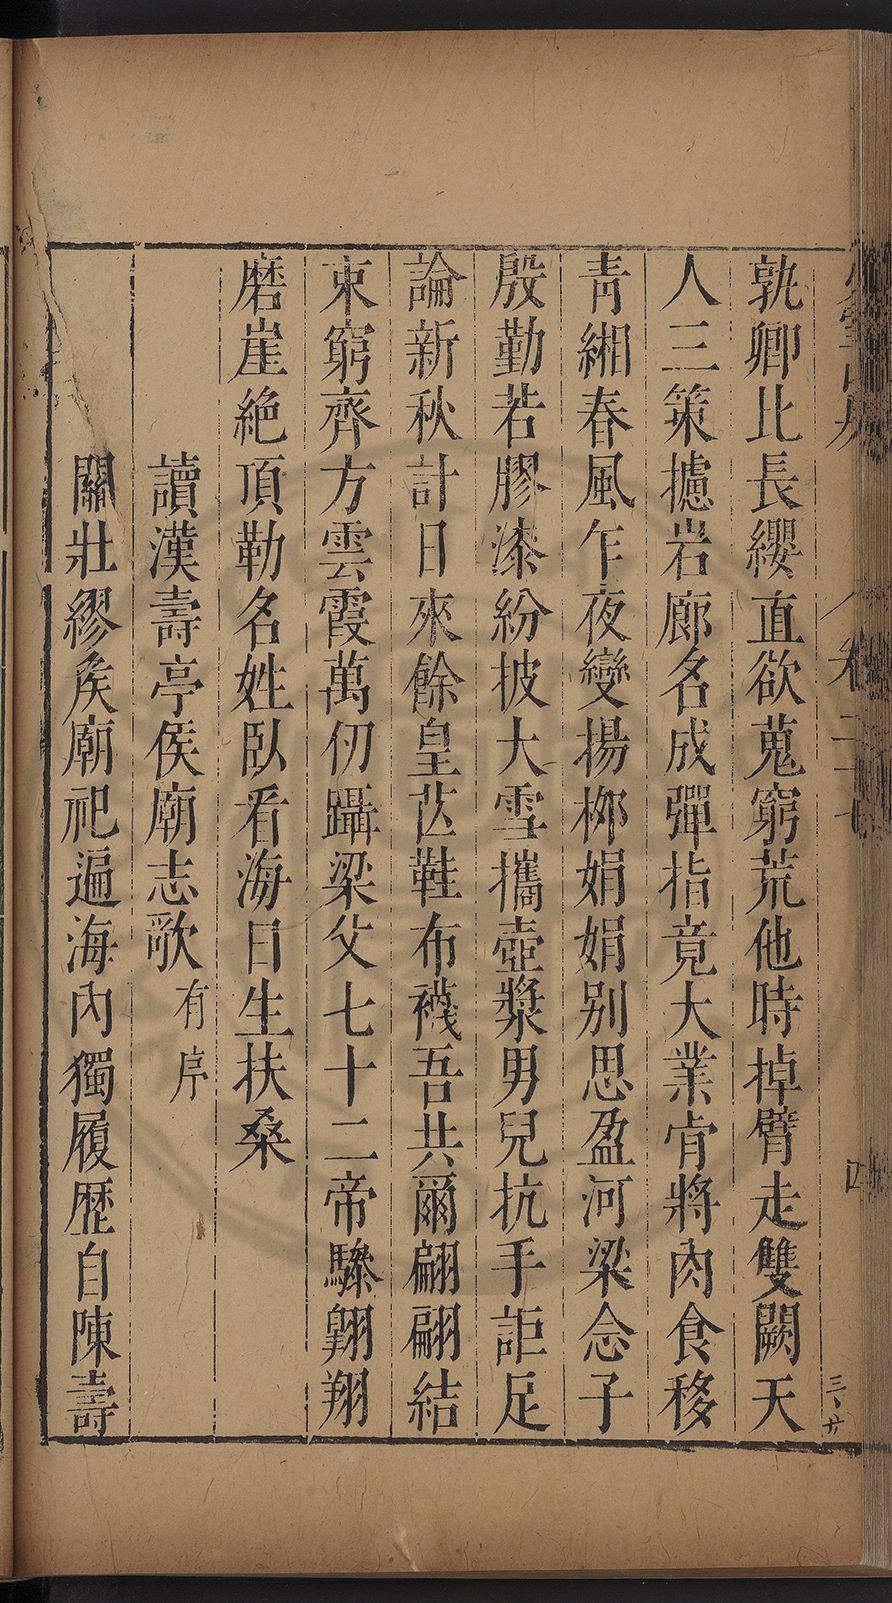 孰卿比長纓直欲蒐窮荒他時掉臂走雙闕天
人三策攄岩廊名成彈指竟大業肯將肉食移
青緗春風乍夜變揚桺娟娟別思盈河梁念子
殷勤若膠漆紛披大雪攜壺漿男兒抗手詎足
論新秋計日來餘皇芒鞋布襪吾共爾翩翩結
束窮齊方雲霞萬仞躡梁父七十二帝驂翱翔
磨崖絶頂勒名姓臥看海日生扶桑
讀漢壽亭侯廟志歌有序
關壯繆矦廟祀遍海內獨履歷自陳壽